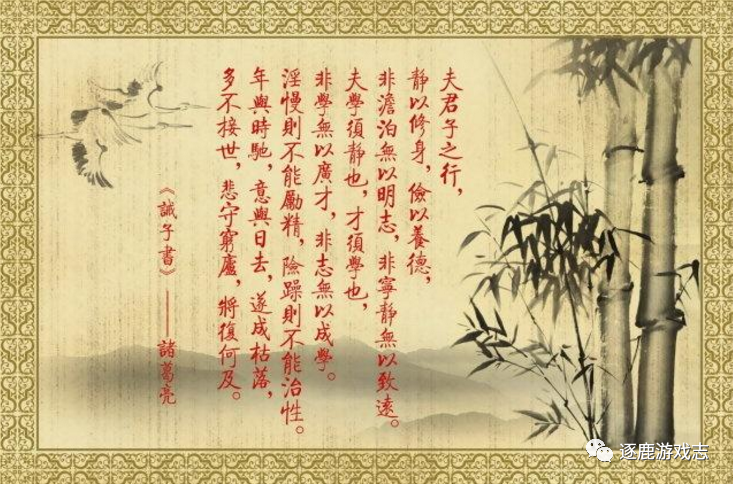 夫君子之行，
靜以修身，儉以養德，
非澹泊無以明志，非寧靜無以致遠。
夫學須靜也，才須學也，
非學無以廣才，非志無以成學。
淫慢則不能勵精，險躁則不能治性。
年與時馳，意與日去，遂成枯落，
多不接世，悲守窮廬，將復何及。
《誡子書》——諸葛亮
逐鹿游戏志